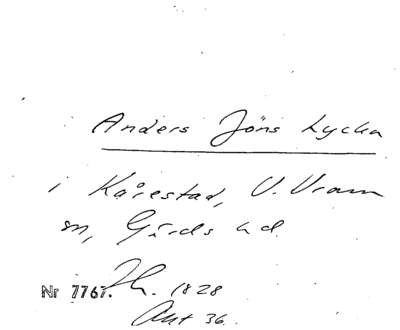 Anders Jöns Lycka
i Kårestad, V. Vram
sn, Gärds hd.
Nr 7767. Th. 1828
Ant 36.